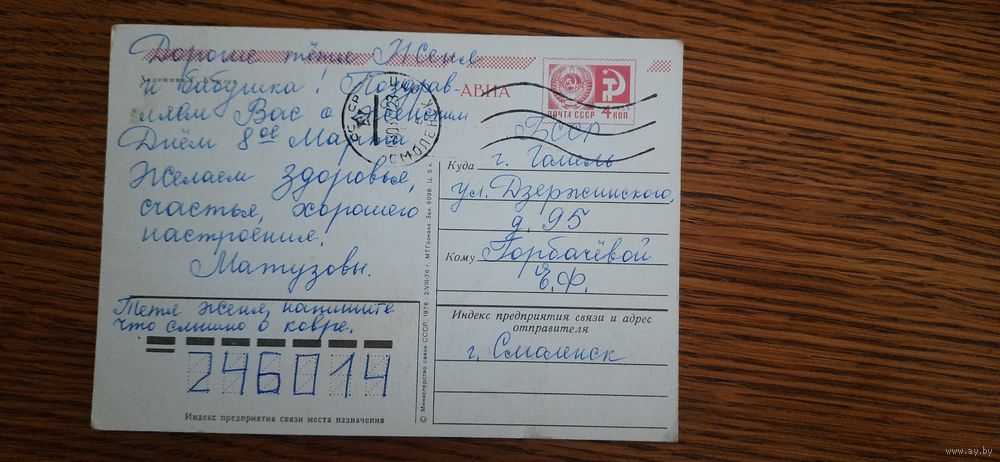 Дорогие тётя Женя
и бабушка! Поздрав-
ляем Вас с женским
Днём 8ое Марта
Желаем здоровья,
счастья, хорошего
настроения.
Матузовы.
Тетя Женя, напишите
что слышно о ковре.
246014
Индекс предприятия связи места назначения
© Министерство связи СССР, 1976 2/VIII-76 г. МТГознака. Зак. 6098. Ц. 5 к.
АВИА
ПОЧТА СССР 4 КОП.
СССР
СМОЛЕНСК
БССР
Куда г. Гомель
ул. Дзержинского,
д. 95
Кому Горбачёвой
Е.Ф.
Индекс предприятия связи и адрес
отправителя
г. Смоленск
www.ay.by